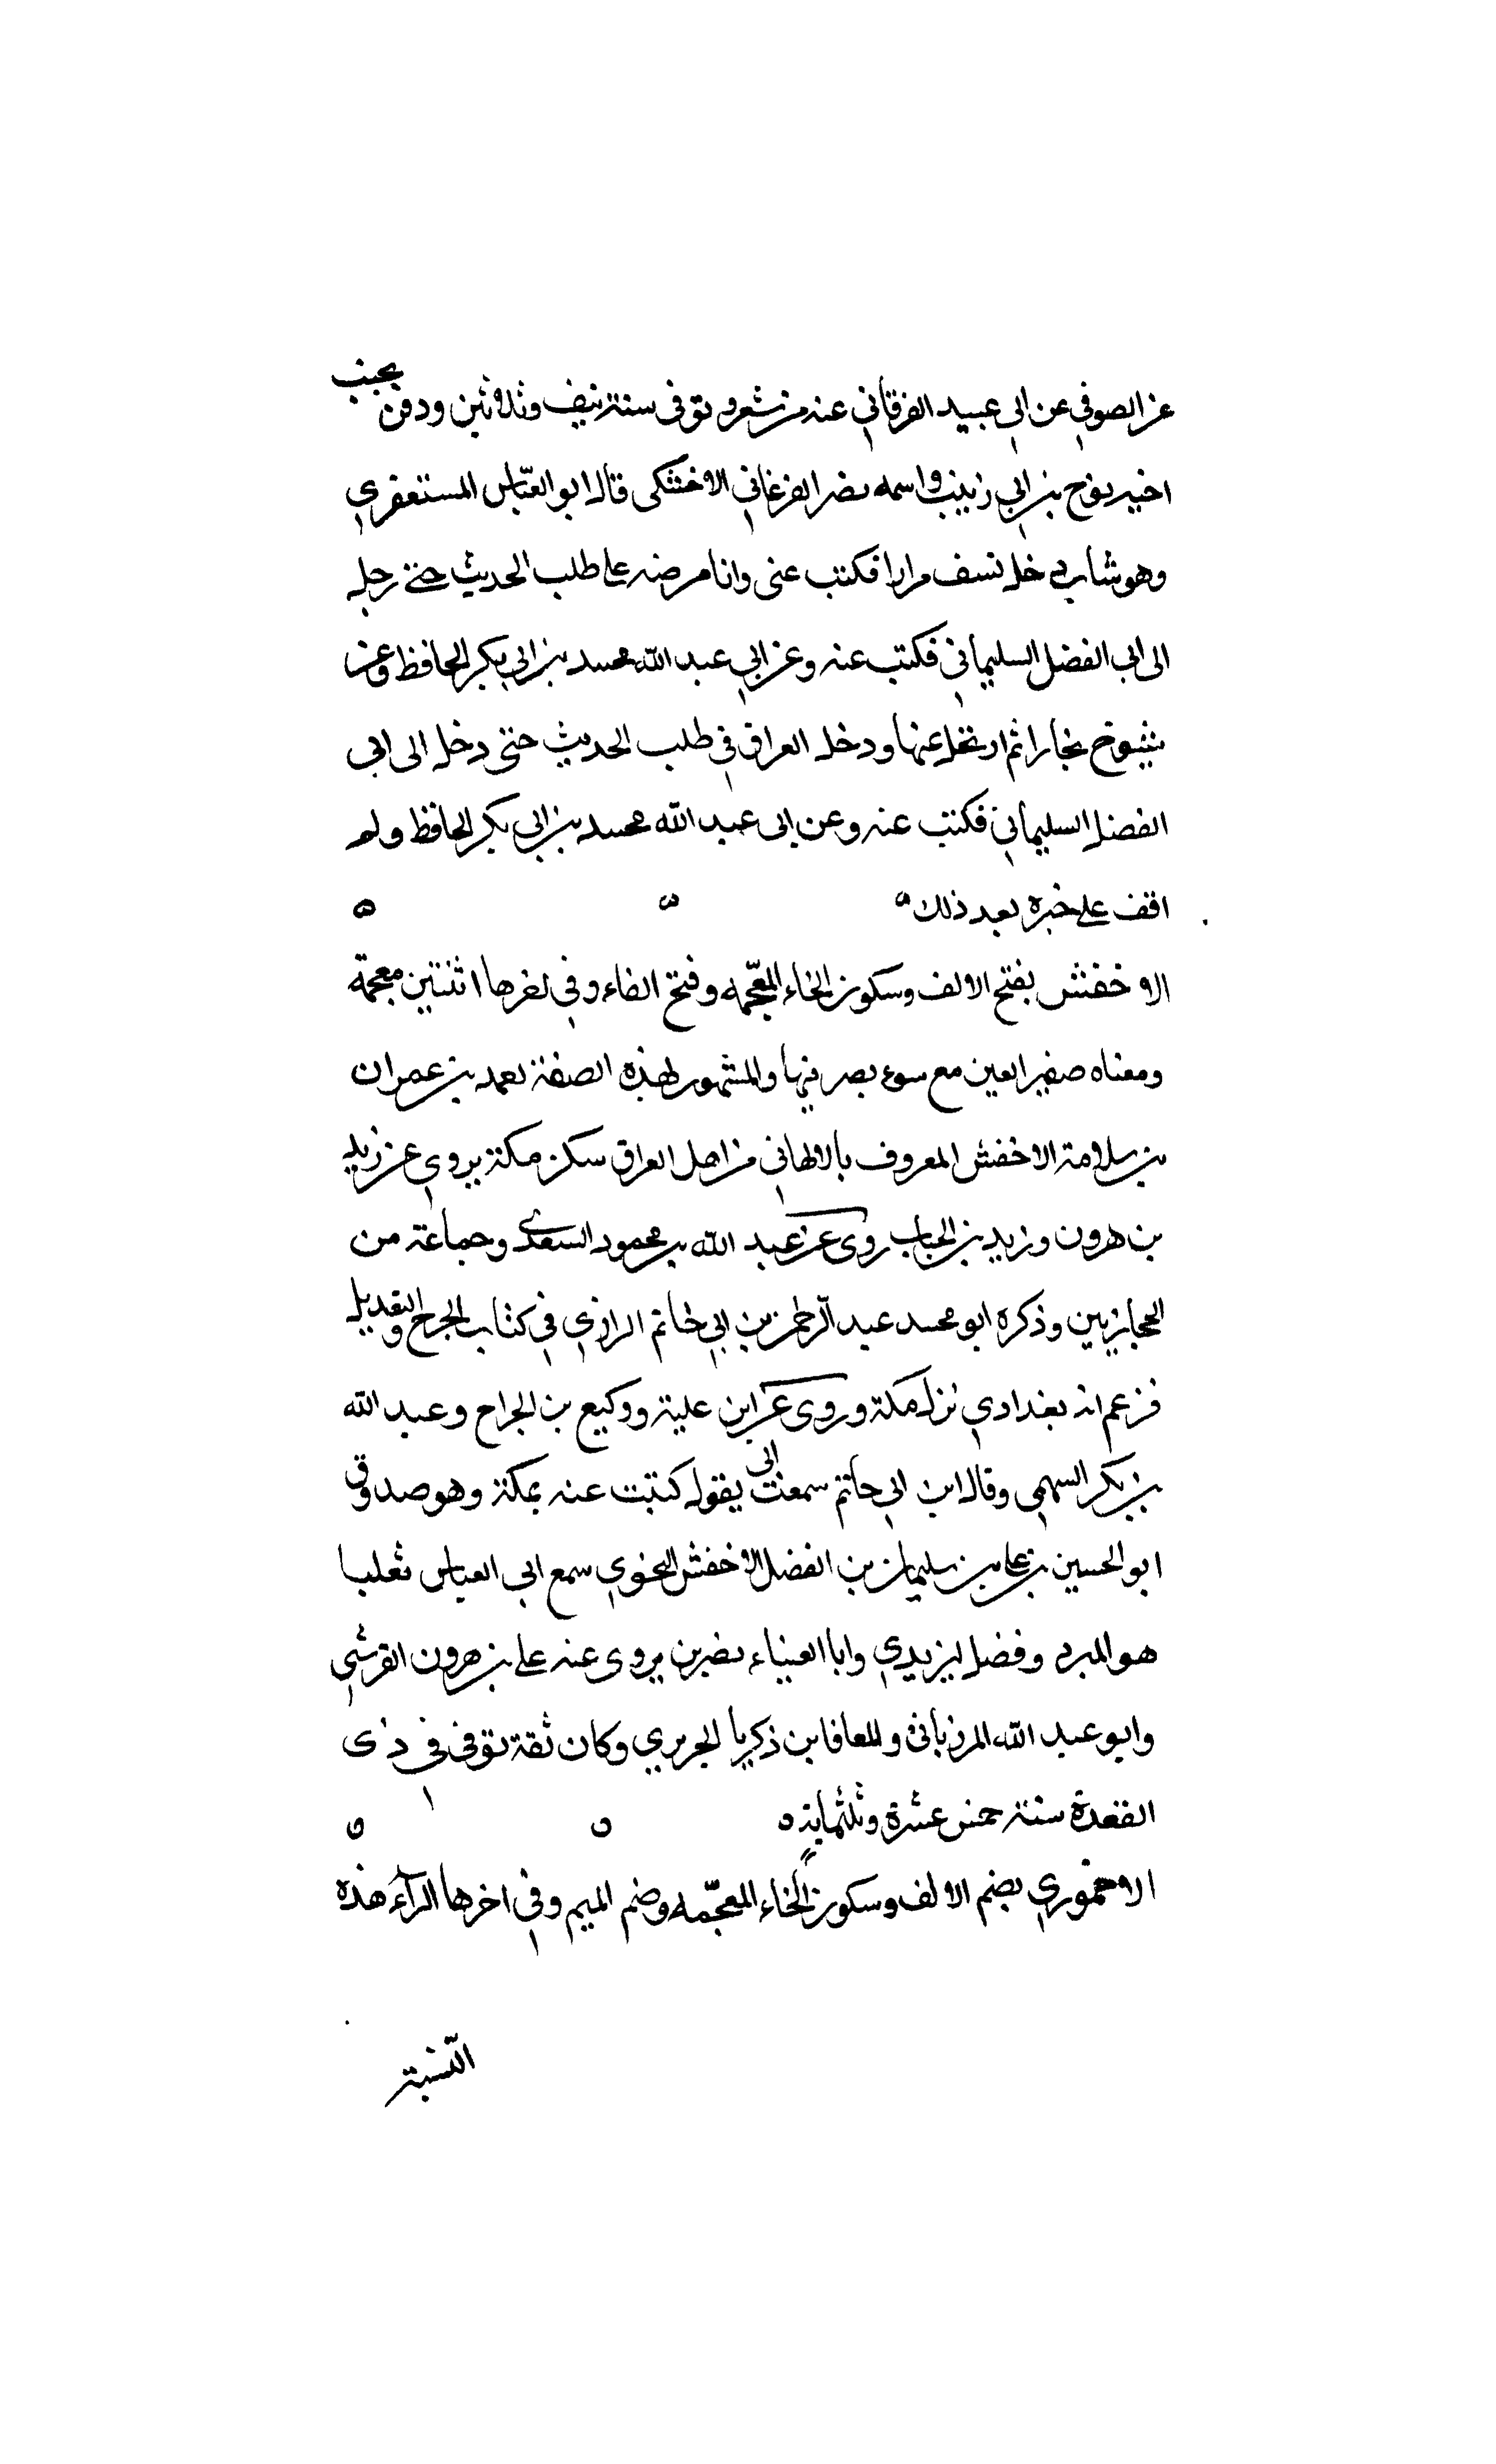 عن الصوفي عن ابي عبيد الفرقاني عنه من شعره توفى سنة نيف وثلاثين ودفن بجنب
اخيه نوح بن ابي زينب واسمه نصر الفرغاني الاخشكى قال ابو العبّاس المستغفري
وهو شاب دخل نسف مرارا فكتب عنى وانا مرضه على طلب الحديث حتى رحل
الى ابى الفضل السليماني فكتب عنه وعن ابي عبد الله محمد بن ابي بكر الحافظ وعن
شيوخ بخارا ثم ارتحل عنها ودخل العراق في طلب الحديث حتى دخل الى ابى
الفضل السليماني فكتب عنه وعن ابى عبد الله محمد بن ابي بكر الحافظ ولم
اقف على خبره بعد ذلك ه
الاخفش بفتح الالف وسكون الخاء المعجّمه وفتح الفاء وفي اخرها اثنتين معجمة
ومعناه صغير العين مع سوء بصر فيها والمشهور لهذه الصفة بن عمران
بن سلامة الاخفش المعروف بالالهاني من اهل العراق سكن مكة يروي عن زيد
بن هرون وزيد بن الحباب روى عن عبد الله بن محمود السعدي وجماعة من
الحجازيين وذكره ابو محمد عبد الرّحمن بن ابي حاتم الرازي في كتاب الجرح والتعديل
فزعم انه بغدادي نزل مكة وروى عن ابن علية ووكيع بن الجراح وعبد الله
بن بكر السهمي وقال ابن ابي حاتم سمعت ابى يقول كتبت عنه بمكة وهو صدوق
ابو الحسين بن على بن سليمان بن الفضل الاخفش النحوي سمع ابي العباس ثعلبا
هو المبرد وفضل ليزيدي وابا العيناء نضرين يروى عنه على بن هرون القرشي
وابو عبد الله المرزباني وللمعافا بن ذكريا الجريري وكان ثقة توفى في ذى
القعدة سنة خمس عشرة وثلثماية ه
الاخموري بضم الالف وسكون الخاء المعجّمه وضم الميم وفي اخرها الرآء هذه
النّسبة